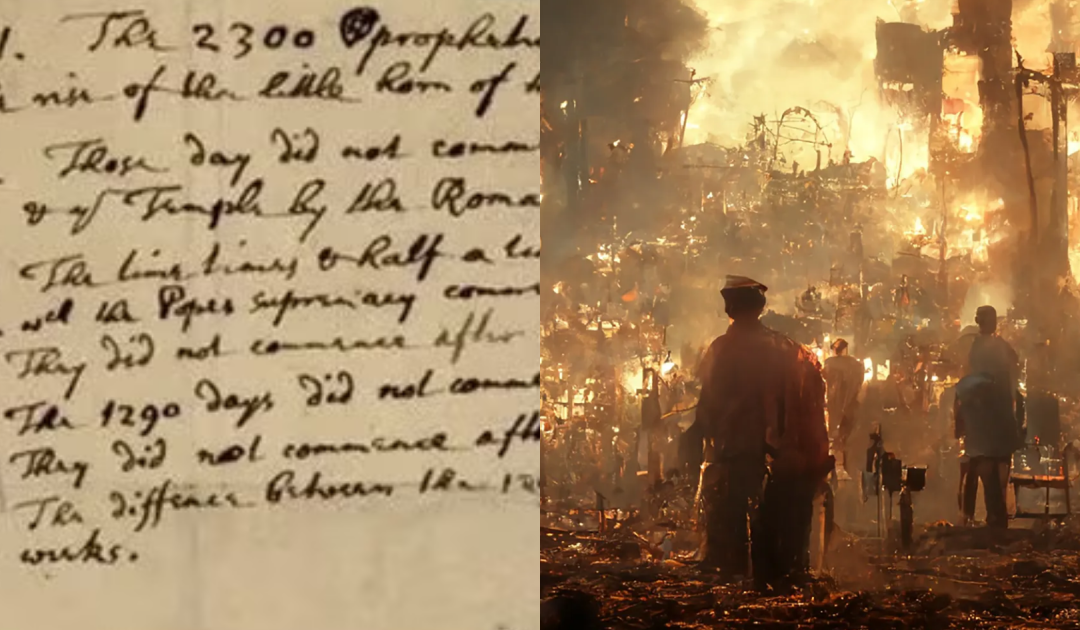 1. The 2300 prophetic
rise of the little horn of
Those day did not comm
& of Temple by the Roma
The time times & half a ti
well the Popes supremacy comm
They did not commence after
The 1290 days did not comm
They did not commence afte
The diffence between the 12
weeks.